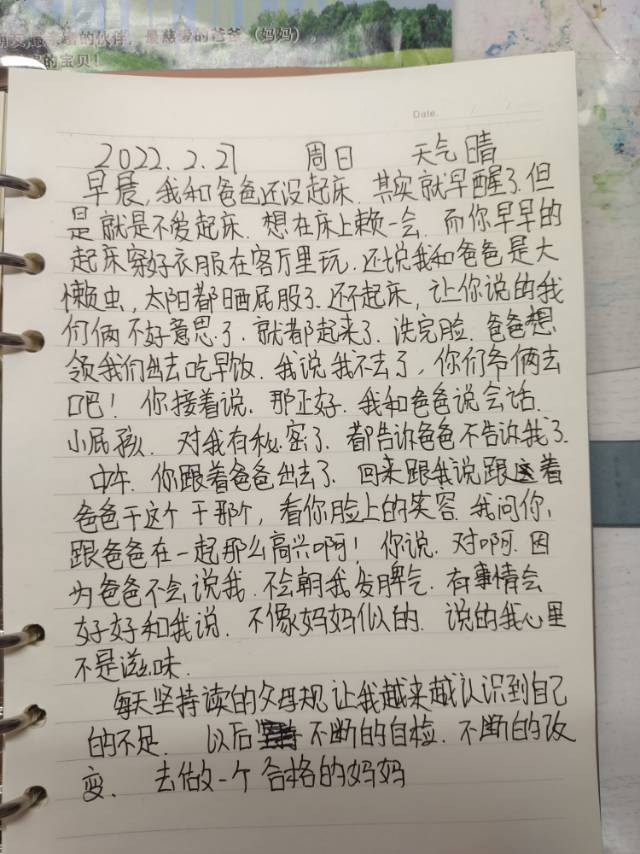 的伙伴，最慈爱的爸爸（妈妈），
的宝贝！
Date.
2022.2.27 周日 天气晴
早晨,我和爸爸还没起床.其实就早醒了.但
是就是不爱起床.想在床上赖一会.而你早早的
起床穿好衣服在客厅里玩.还说我和爸爸是大
懒虫,太阳都晒屁服了.还不起床,让你说的我
们俩不好意思了.就都起来了.洗完脸.爸爸想
领我们出去吃早饭.我说我不去了,你们爷俩去
吧!你接着说.那正好.我和爸爸说会话.
小屁孩.对我有秘密了.都告诉爸爸不告诉我了.
中午.你跟着爸爸出去了.回来跟我说跟着
爸爸干这个干那个,看你脸上的笑容.我问你,
跟爸爸在一起那么高兴啊!你说.对啊.因
为爸爸不会说我.不会朝我发脾气.有事情会
好好和我说.不像妈妈似的.说的我心里
不是滋味.
每天坚持读的父母规让我越来越认识到自己
的不足.以后不断的自检.不断的改
变.去做一个合格的妈妈